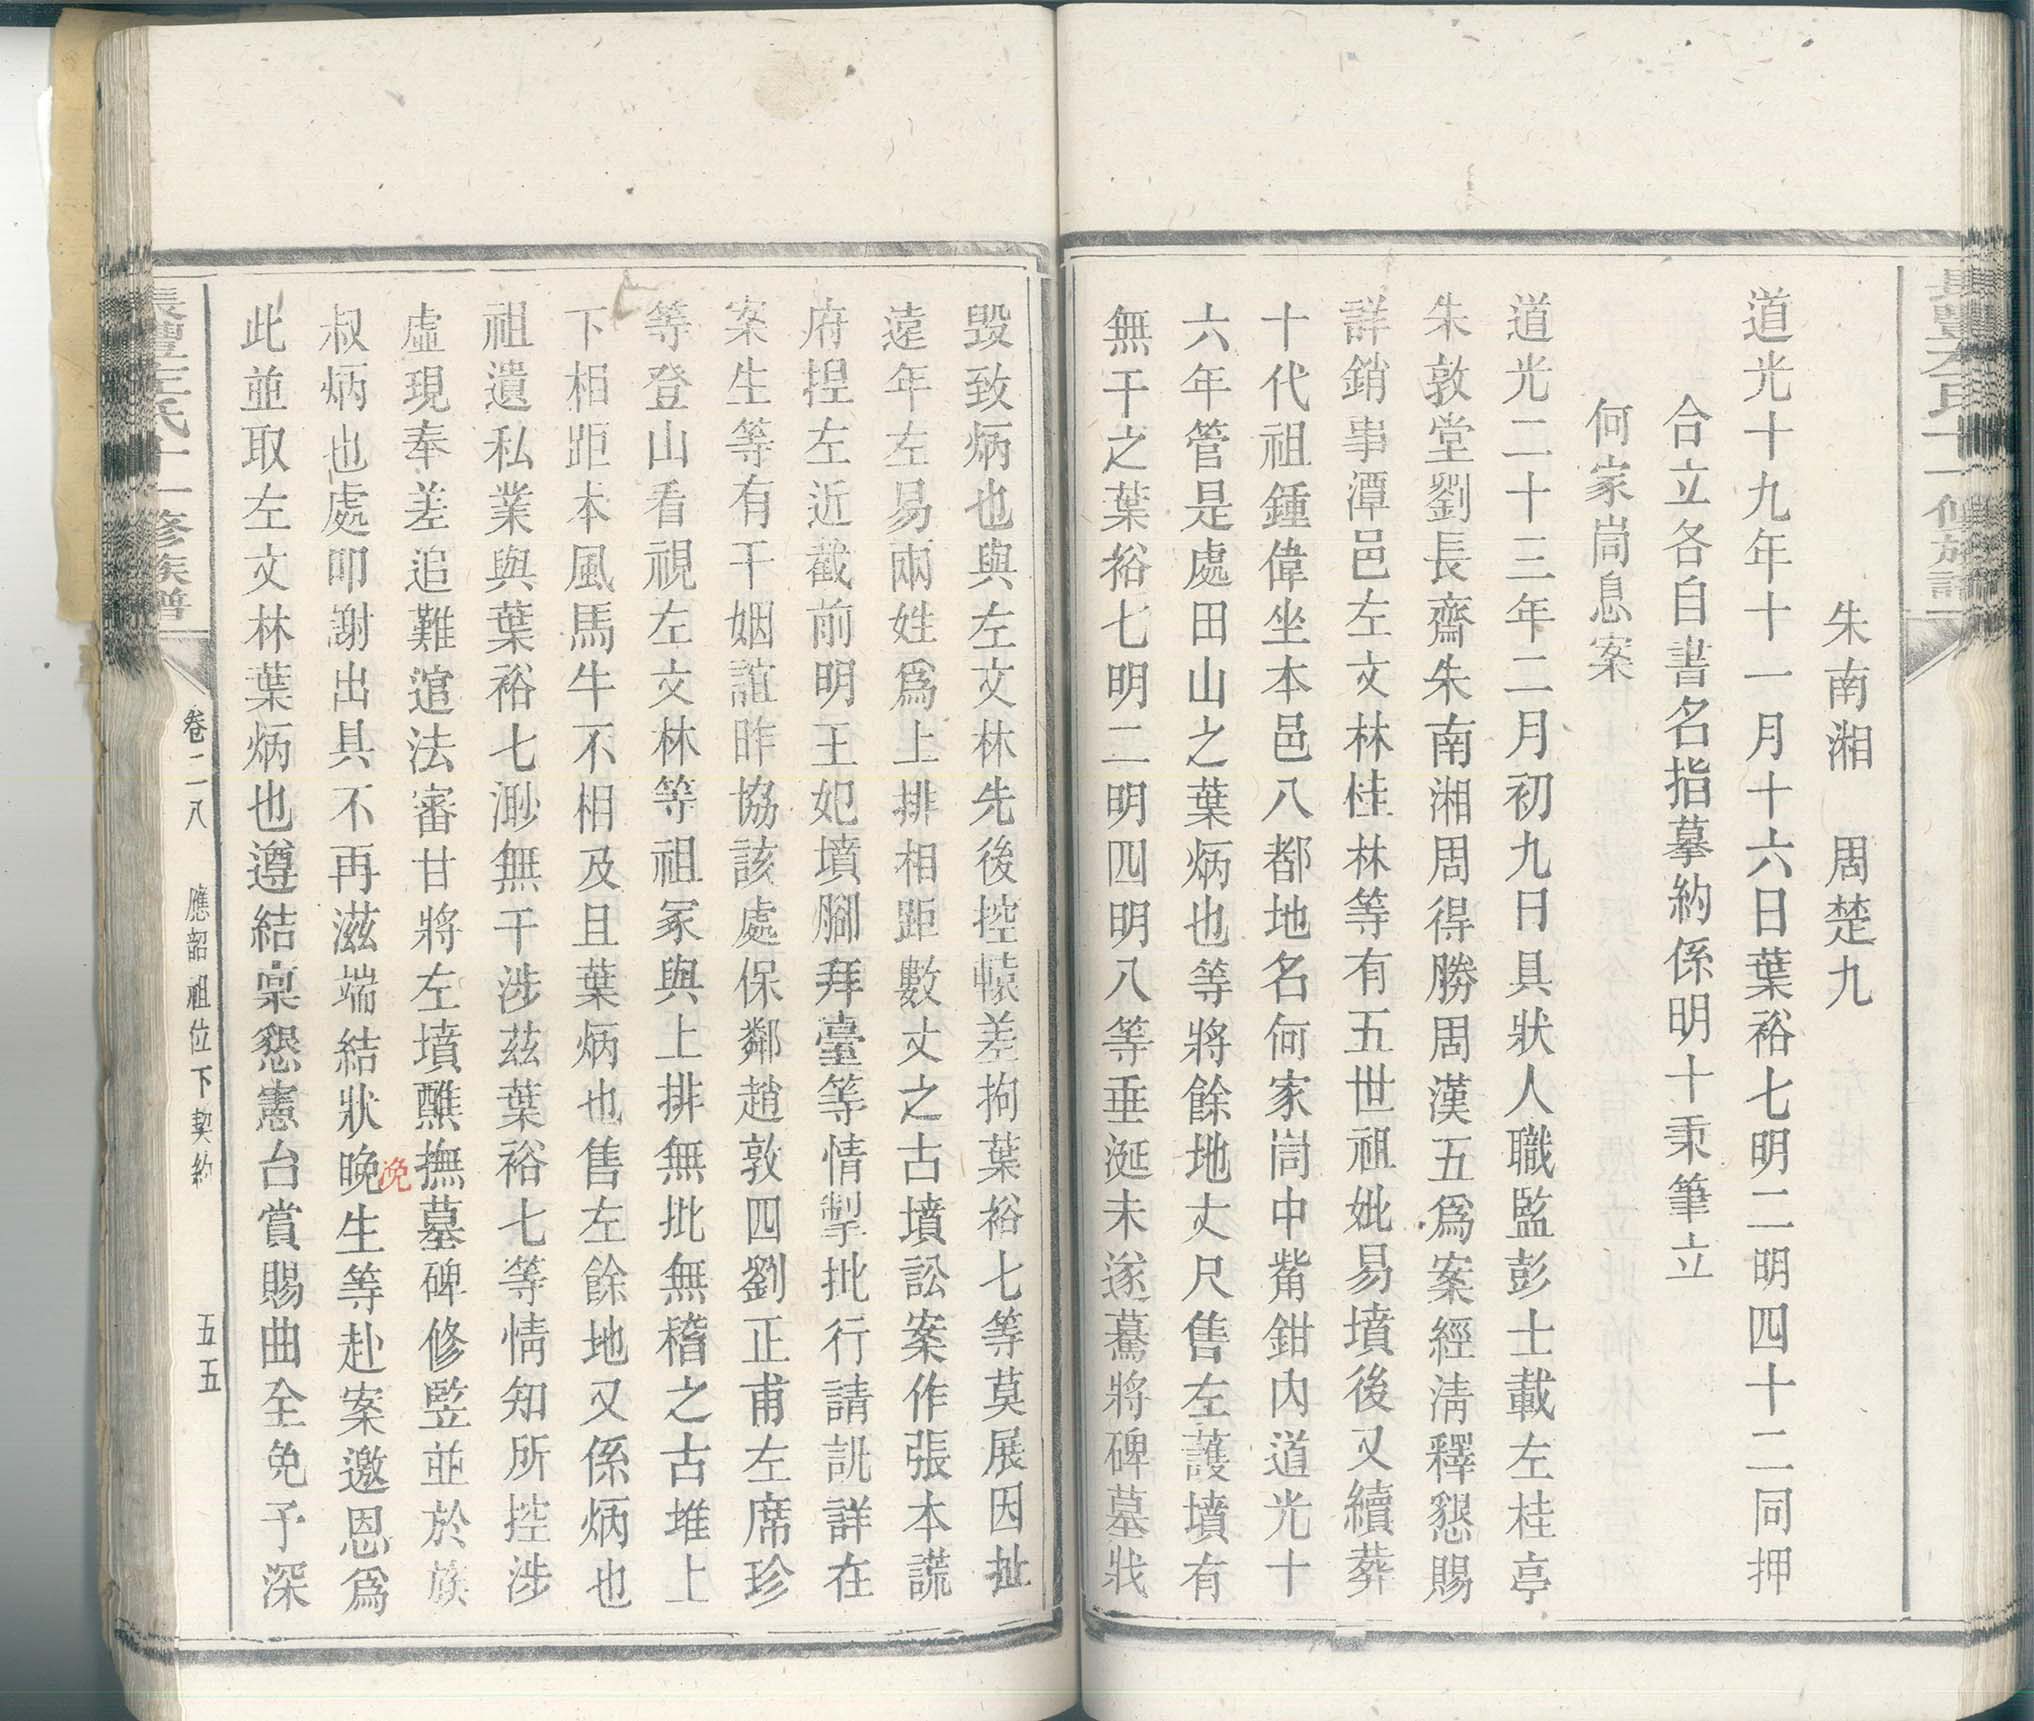 朱南湘　周楚九
道光十九年十一月十六日葉裕七明二明四十二同押
合立各自書名指摹約係明十秉筆立
何家崗息案
道光二十三年二月初九日具狀人職監彭士載左桂亭
朱敦堂劉長齋朱南湘周得勝周漢五爲案經淸釋懇賜
詳銷事潭邑左文林桂林等有五世祖妣易墳後又續葬
十代祖鍾偉坐本邑八都地名何家崗中觜鉗內道光十
六年管是處田山之葉炳也等將餘地丈尺售左護墳有
無干之葉裕七明二明四明八等垂涎未遂驀將碑墓戕
毀致炳也與左文林先後控轅差拘葉裕七等莫展因扯
遠年左易兩姓爲上排相距數丈之古墳訟案作張本謊
府捏左近截前明王妃墳腳拜臺等情掣批行請訛詳在
案生等有干姻誼昨協該處保鄰趙敦四劉正甫左席珍
等登山看視左文林等祖冢與上排無批無稽之古堆上
下相距本風馬牛不相及且葉炳也售左餘地又係炳也
祖遺私業與葉裕七渺無干涉茲葉裕七等情知所控涉
虛現奉差追難逭法審甘將左墳醮撫墓碑修竪並於族
叔炳也處叩謝出具不再滋端結狀晚生等赴案邀恩爲
浼
此並取左文林葉炳也遵結稟懇憲台賞賜曲全免予深
左氏十一修族譜
卷二八　應韶祖位下契約　五五